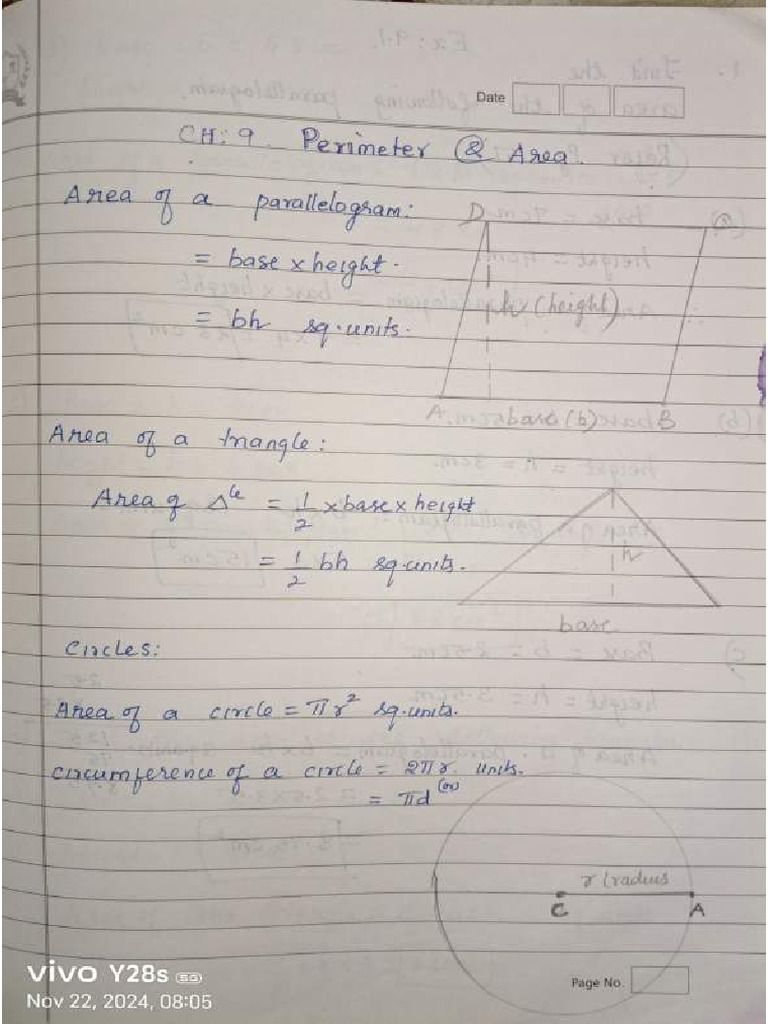 Date
CH: 9. Perimeter & Area.
Area of a parallelogram:
= base x height.
= bh sq.units.
D
h (height)
A base (b) B
Area of a triangle:
Area of Δle = 1/2 x base x height
= 1/2 bh sq.units.
h
base
Circles:
Area of a circle = πr² sq.units.
circumference of a circle = 2πr units.
(or)
= πd
r (radius
C A
Page No.
vivo Y28s 5G
Nov 22, 2024, 08:05